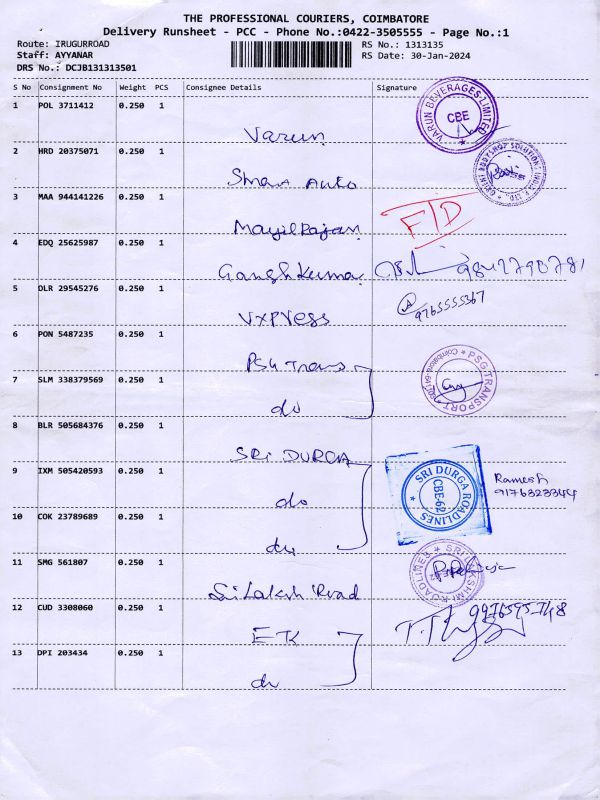 THE PROFESSIONAL COURIERS, COIMBATORE
Delivery Runsheet - PCC - Phone No.:0422-3505555 - Page No.:1
Route: IRUGURROAD RS No.: 1313135
Staff: AYYANAR RS Date: 30-Jan-2024
DRS No.: DCJB131313501
S No Consignment No Weight PCS Consignee Details Signature
1 POL 3711412 0.250 1 Varun VARUN BEVERAGES LIMITED CBE
2 HRD 20375071 0.250 1 Smart Auto
3 MAA 944141226 0.250 1 Mayilrajan FTD
4 EDQ 25625987 0.250 1 Ganesh Kumar
5 DLR 29545276 0.250 1 VXPress 9765555367
6 PON 5487235 0.250 1 PSG Trans PSG TRANSPORT
7 SLM 338379569 0.250 1 do
8 BLR 505684376 0.250 1 SRI DURGA
9 IXM 505420593 0.250 1 do SRI DURGA ROADLINES CBE-62 Ramesh
10 COK 23789689 0.250 1 do
11 SMG 561807 0.250 1 Sri Laksh Road SRI LAKSHMI ROADLINES
12 CUD 3308060 0.250 1 ETK
13 DPI 203434 0.250 1 do